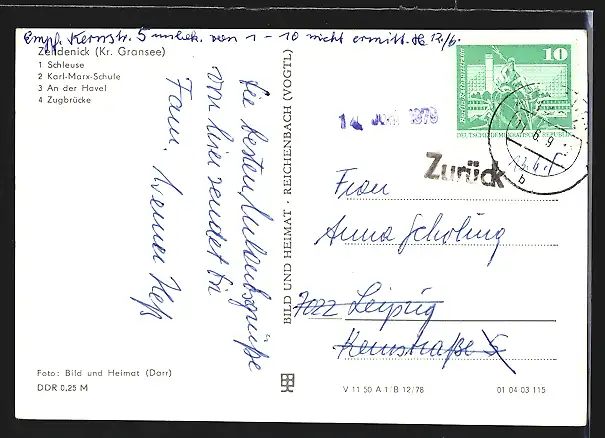 Empf. Kernstr. 5 unbek. von 1 - 10 nicht ermitt. 12/6.
Zehdenick (Kr. Gransee)
1 Schleuse
2 Karl-Marx-Schule
3 An der Havel
4 Zugbrücke
Die besten Urlaubsgrüße
von hier sendet Dir
Fam. Werner Heß
Foto: Bild und Heimat (Darr)
DDR 0,25 M
BILD UND HEIMAT · REICHENBACH (VOGTL)
10
DEUTSCHE DEMOKRATISCHE REPUBLIK
14. JUNI 1979
Zurück
Frau
Anna Scholing
7022 Leipzig
Kernstraße 5
V 11 50 A 1/B 12/78
01 04 03 115